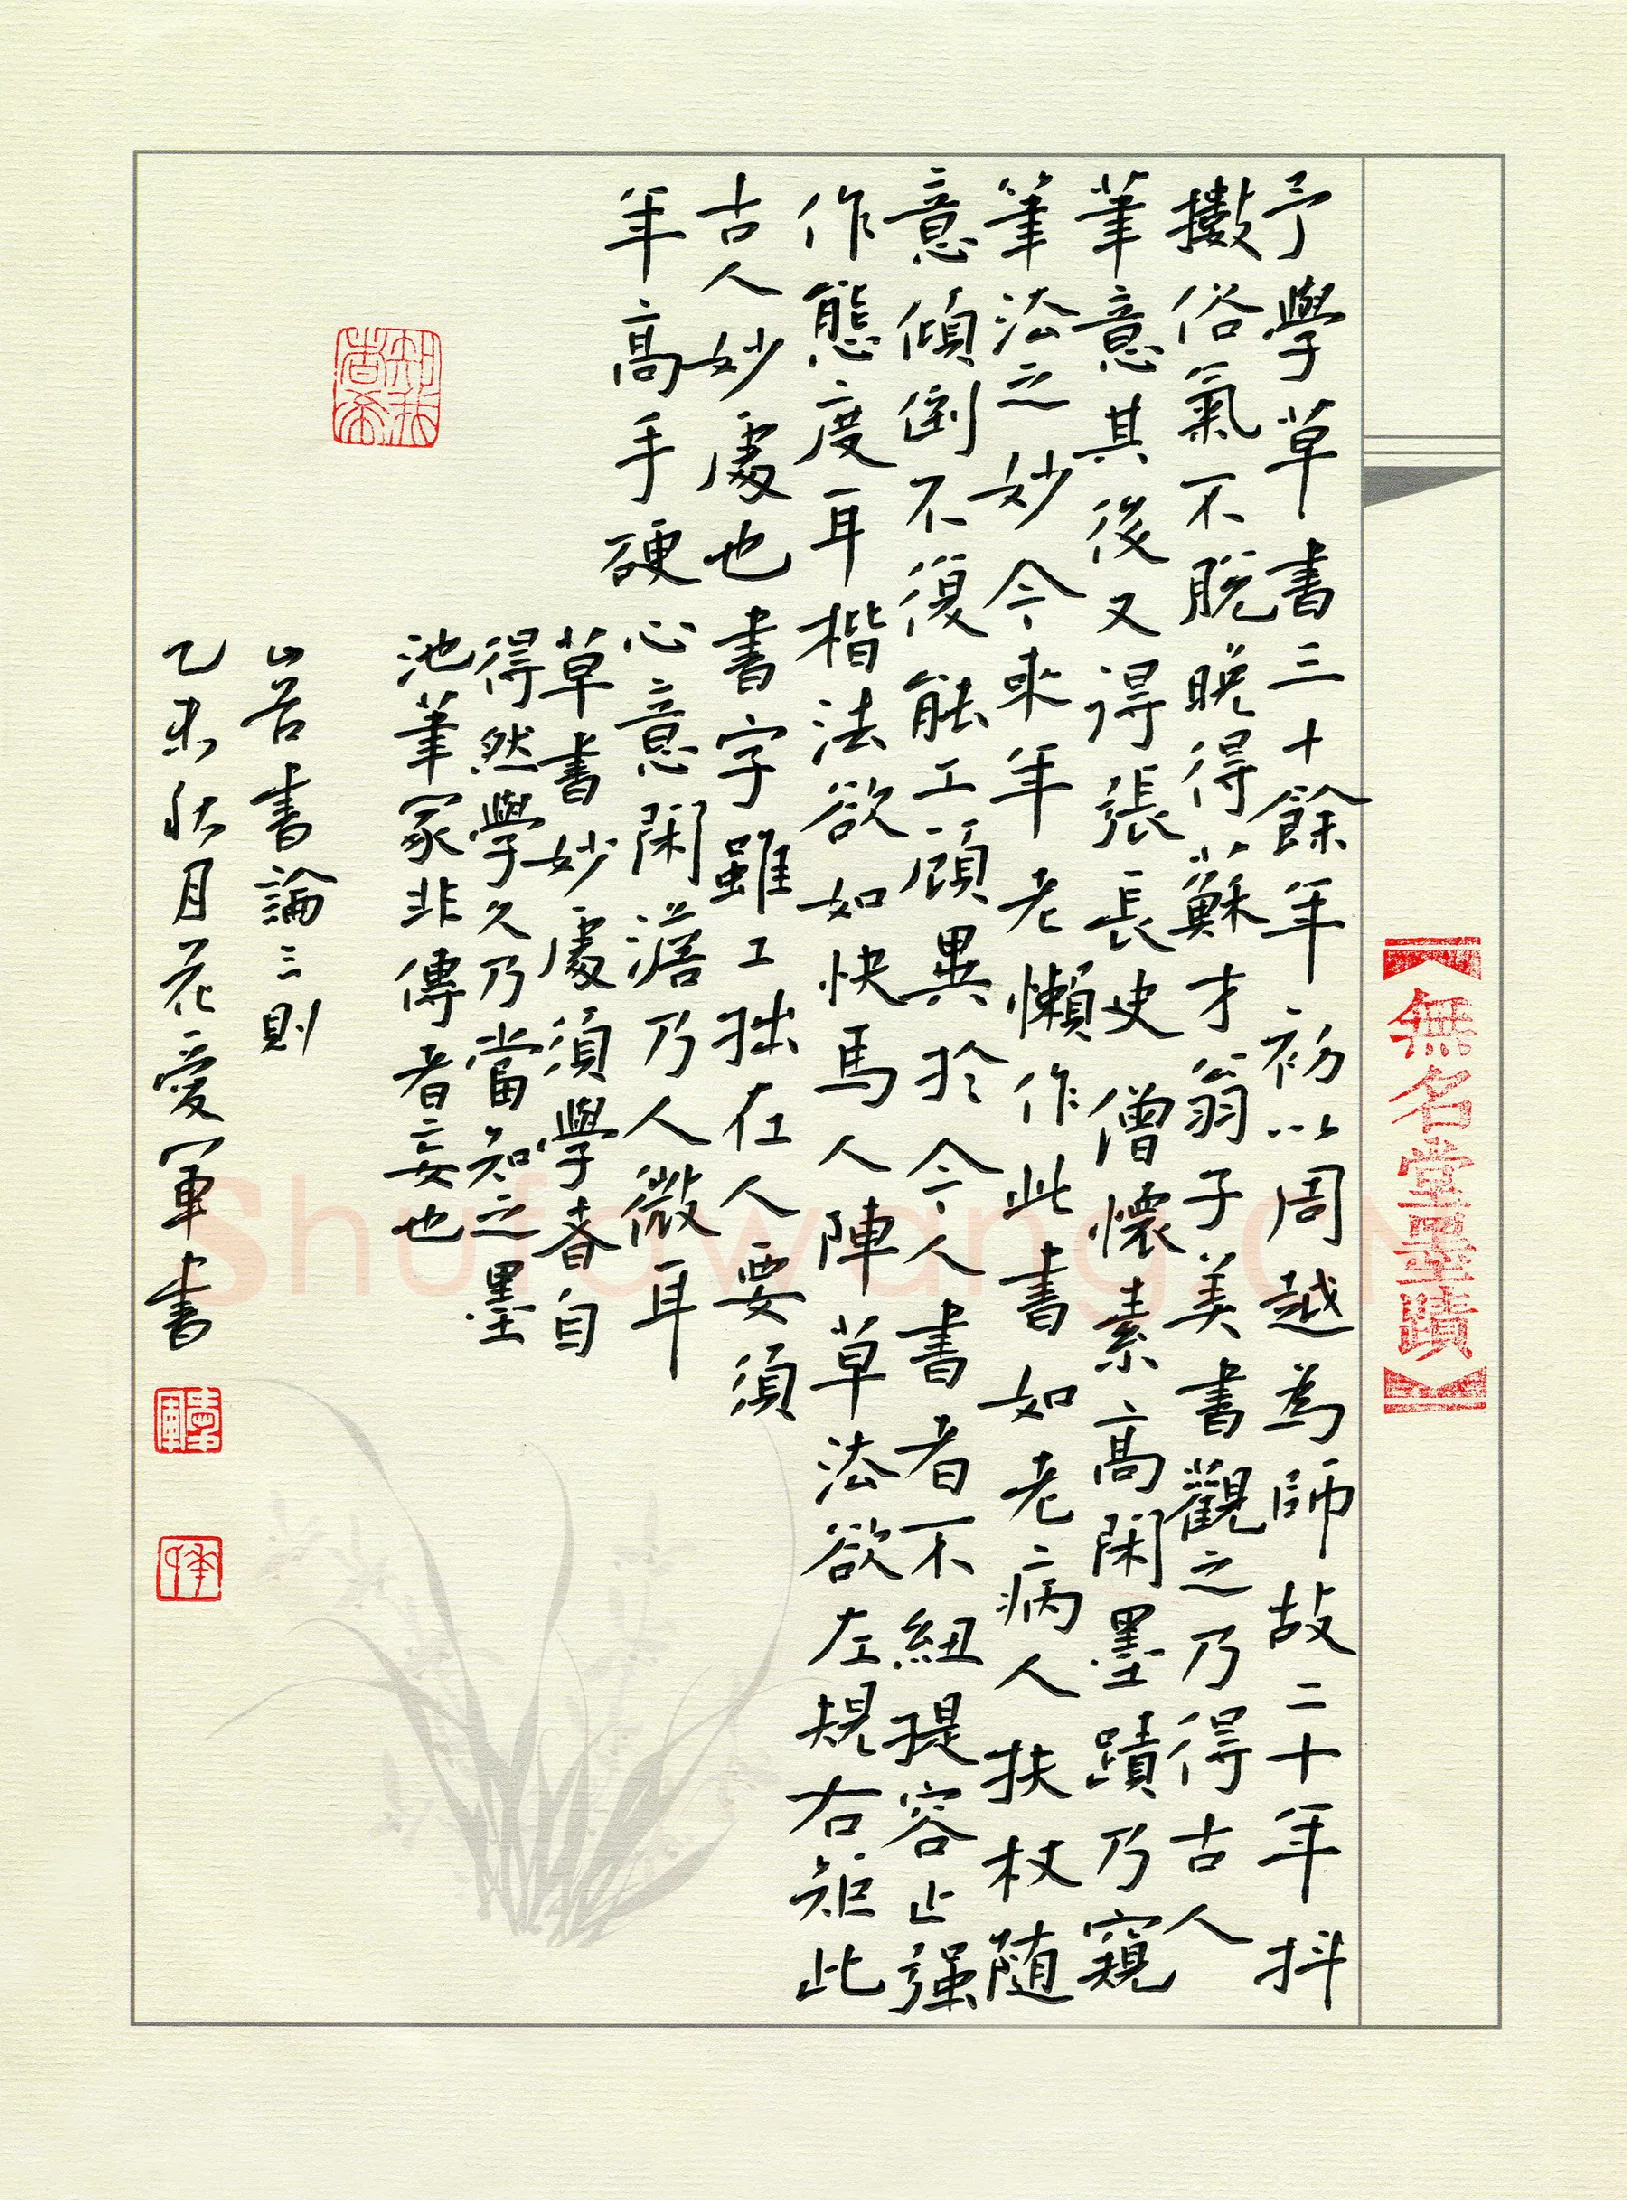 【無名堂墨蹟】
予學草書三十餘年初以周越為師故二十年抖
擻俗氣不脫晚得蘇才翁子美書觀之乃得古人
筆意其後又得張長史僧懷素高閑墨蹟乃窺
筆法之妙今來年老懶作此書如老病人扶杖隨
意傾倒不復能工顧異於今人書者不紐提容止强
作態度耳楷法欲如快馬人陣草法欲左規右矩此
古人妙處也書字雖工拙在人要須
年高手硬心意閑澹乃人微耳
草書妙處須學者自
得然學久乃當知之墨
池筆冢非傳者妄也
山谷書論三則
乙未秋月花愛軍書
Shufawang.CN